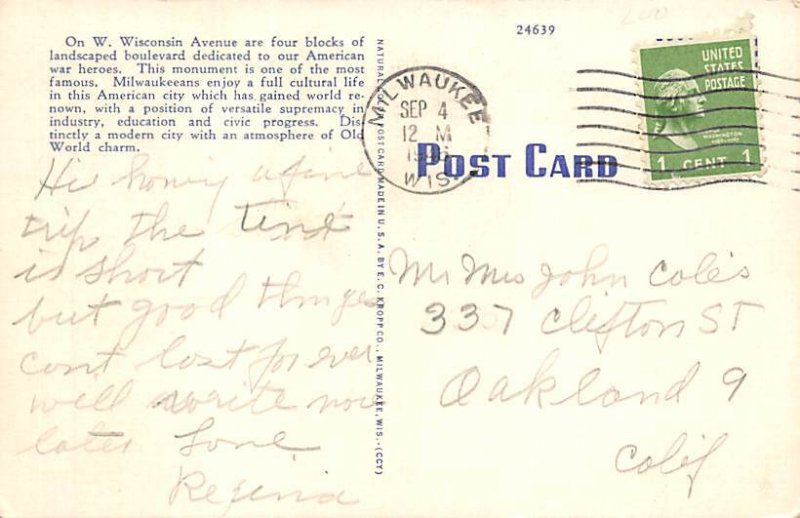 24639
On W. Wisconsin Avenue are four blocks of
landscaped boulevard dedicated to our American
war heroes. This monument is one of the most
famous. Milwaukeeans enjoy a full cultural life
in this American city which has gained world re-
nown, with a position of versatile supremacy in
industry, education and civic progress. Dis-
tinctly a modern city with an atmosphere of Old
World charm.
Hi honey a fine
trip the time
is short
but good things
cant last for ever
will write more
later Love
Regina
MADE IN U.S.A. BY E. C. KROPP CO., MILWAUKEE, WIS.-(CCY)
MILWAUKEE
SEP 4
12 M
WIS.
POST CARD
UNITED
STATES
POSTAGE
1 CENT 1
Mr Mrs John Coles
337 Clifton ST
Oakland 9
Calif